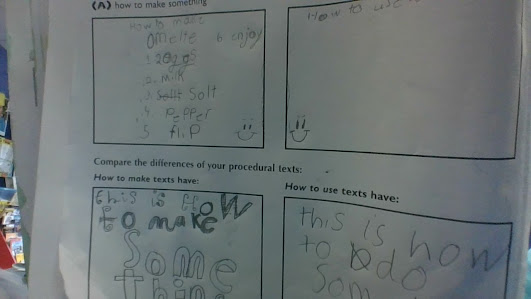 (A) how to make something
How to make
Omelie 6 enjoy
1. 2 eggs
2. milk
3. Solt
4. pepper
5 flip
How to use
Compare the differences of your procedural texts:
How to make texts have:
this is HOW
to make
Some
thing
How to use texts have:
this is how
to do
Som